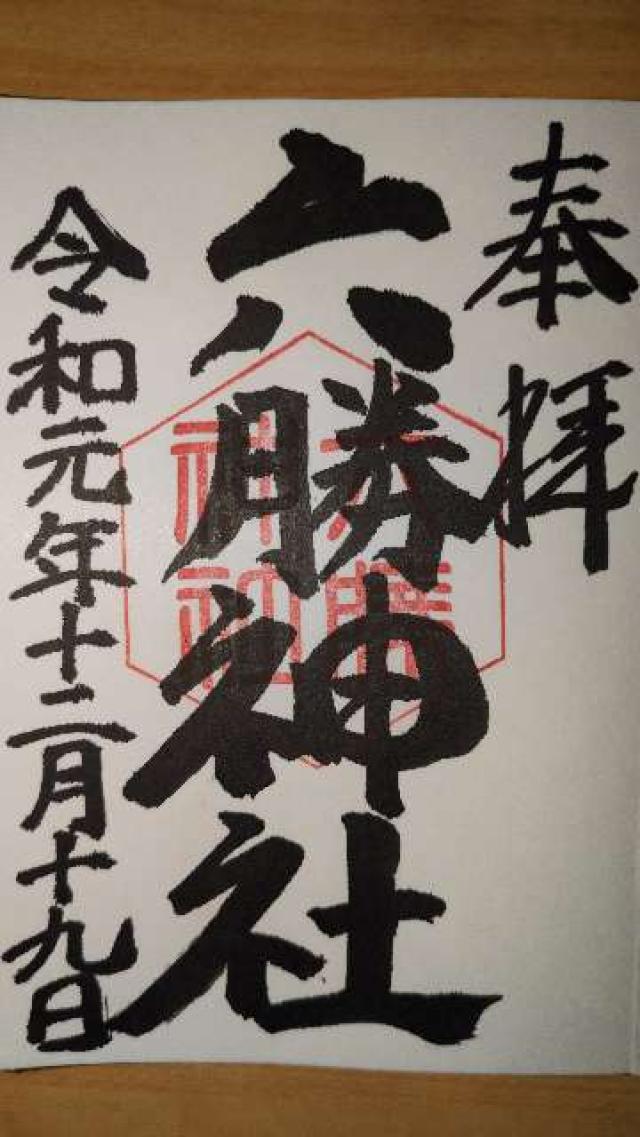 奉拝
六勝神社
六勝
神社
令和元年十二月十九日